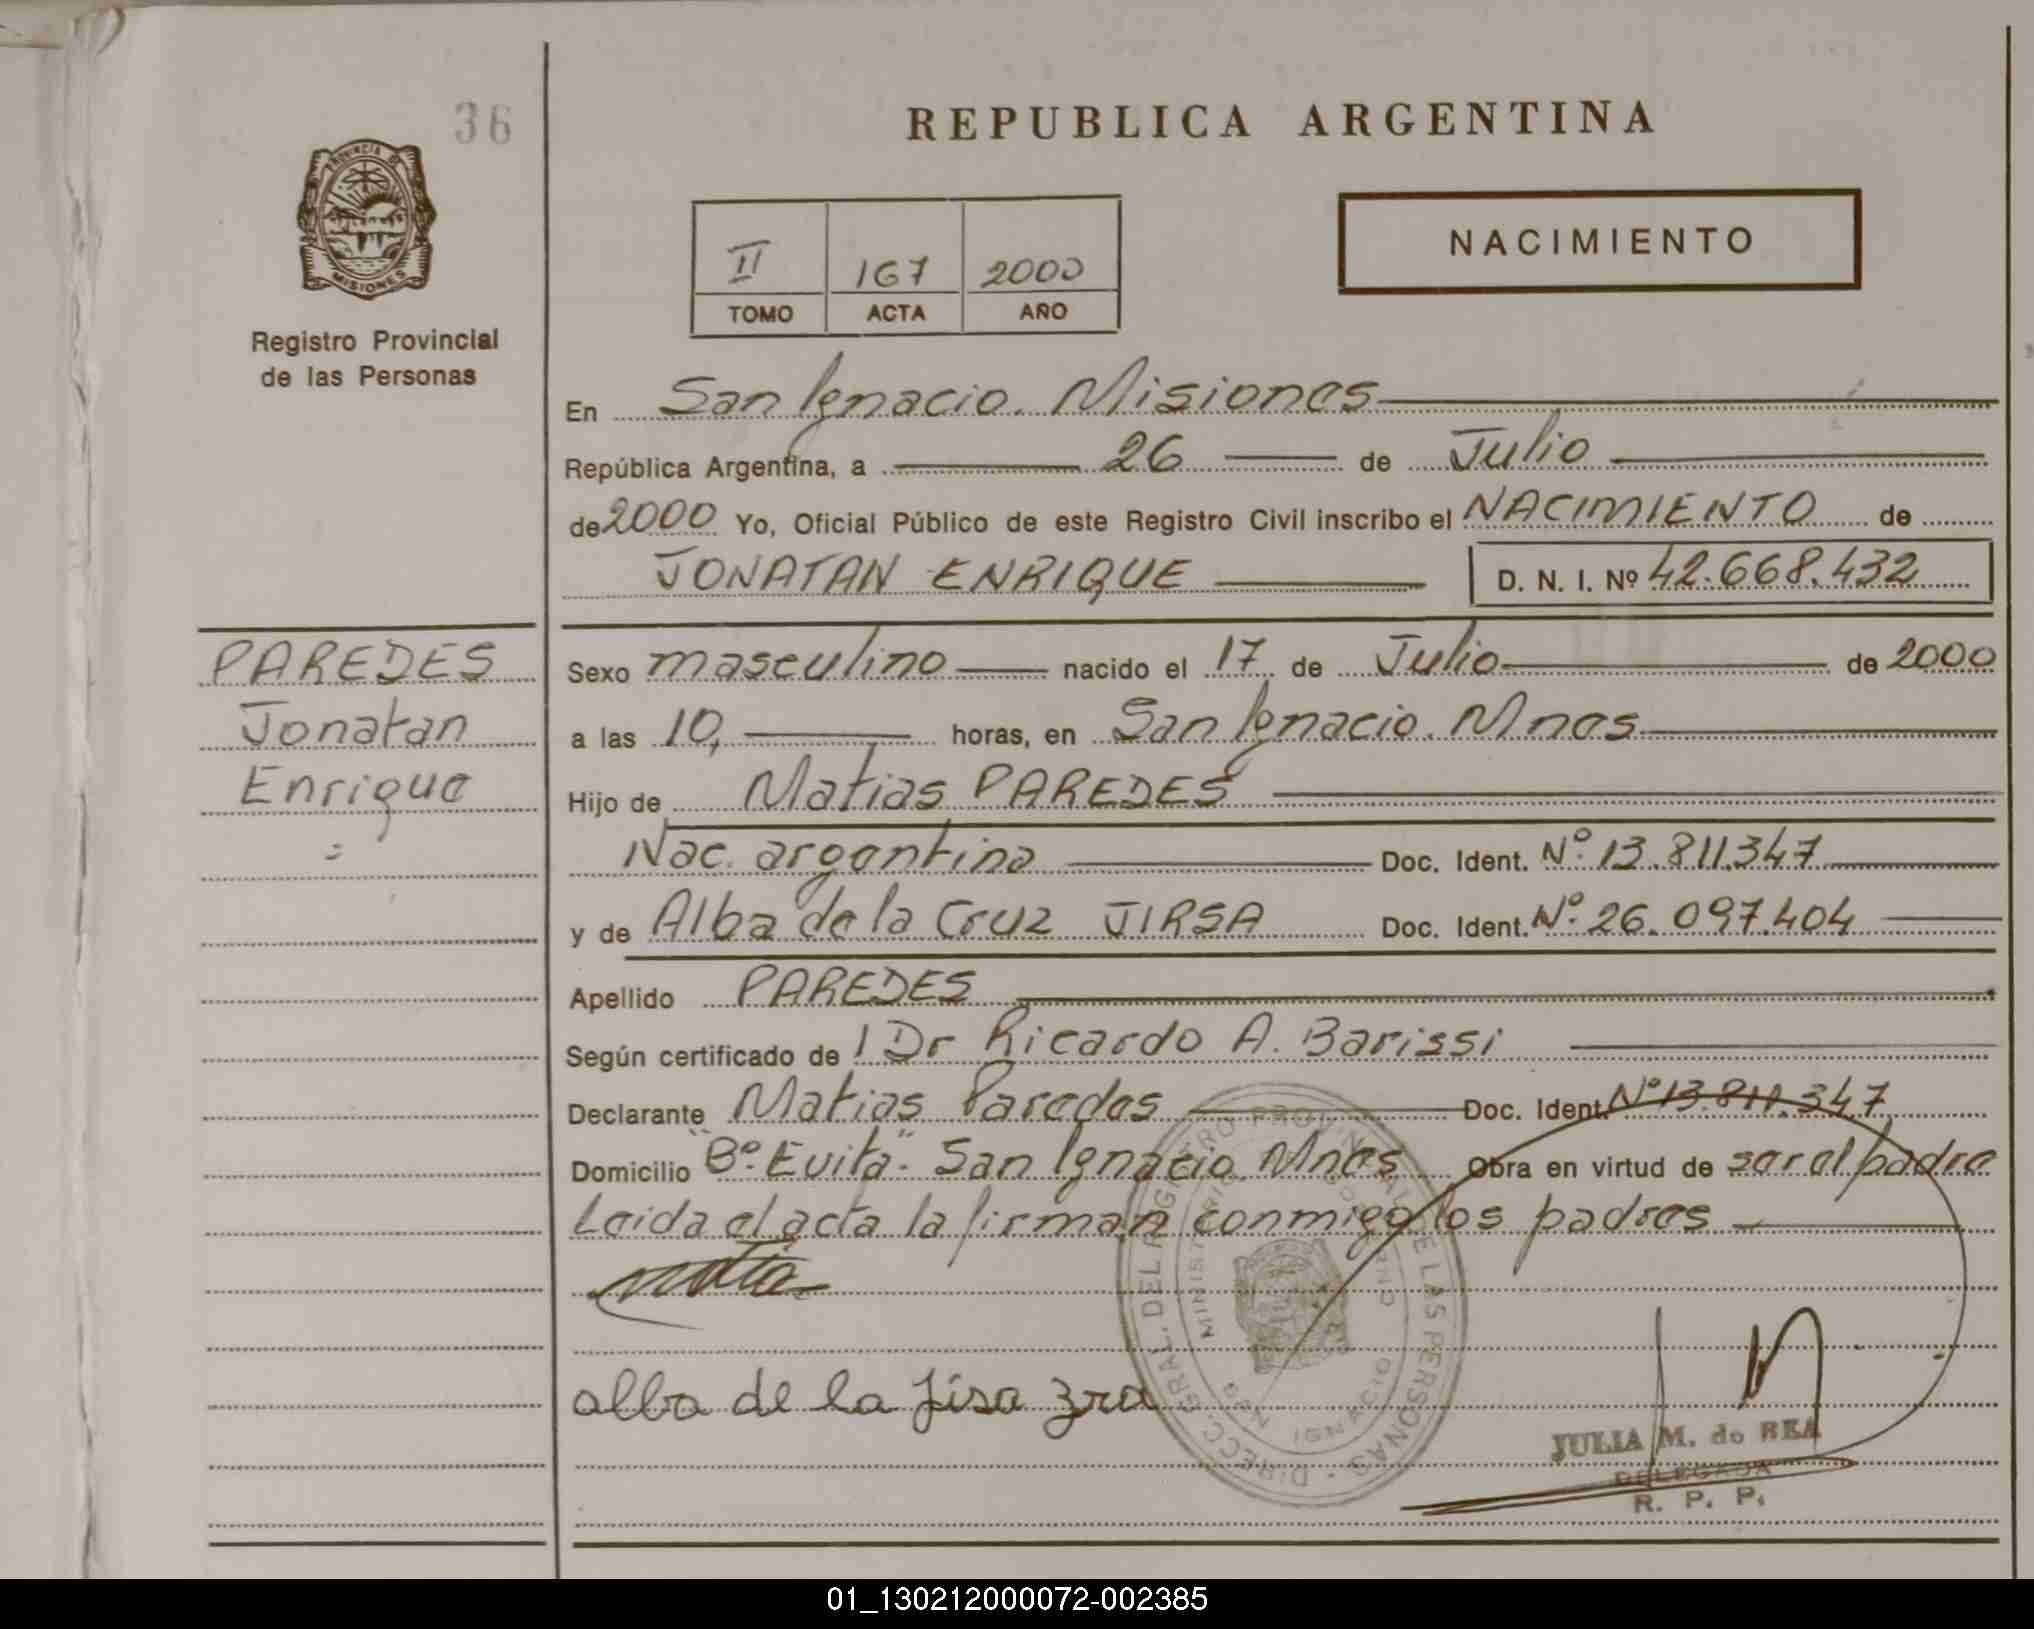 36
REPUBLICA ARGENTINA
PROVINCIA DE
MISIONES
Registro Provincial
de las Personas
NACIMIENTO
II 167 2000
TOMO ACTA AÑO
En San Ignacio. Misiones
República Argentina, a 26 de Julio
de 2000 Yo, Oficial Público de este Registro Civil inscribo el NACIMIENTO de
JONATAN ENRIQUE D. N. I. Nº 42.668.432
PAREDES
Jonatan
Enrique
Sexo masculino nacido el 17 de Julio de 2000
a las 10, horas, en San Ignacio. Mnes
Hijo de Matias PAREDES
Nac. argentina Doc. Ident. Nº 13.811.347
y de Alba de la Cruz JIRSA Doc. Ident. Nº 26.097.404
Apellido PAREDES
Según certificado de l Dr Ricardo A. Barissi
Declarante Matias Paredes Doc. Ident. Nº 13.811.347
Domicilio "Bº. Evita". San Ignacio Mnes Obra en virtud de ser el padre
Leida el acta la firman conmigo los padres
DIRECC. GRAL. DEL REGISTRO PROVINCIAL DE LAS PERSONAS
MINISTERIO GOBIERNO
SAN IGNACIO
alba de la
JULIA M. do REA
DELEGADA
R. P. P.
01_130212000072-002385